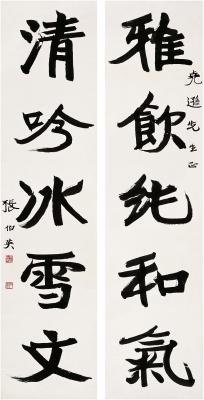 雅飲純和氣
堯遜先生正
清吟冰雪文
張伯英